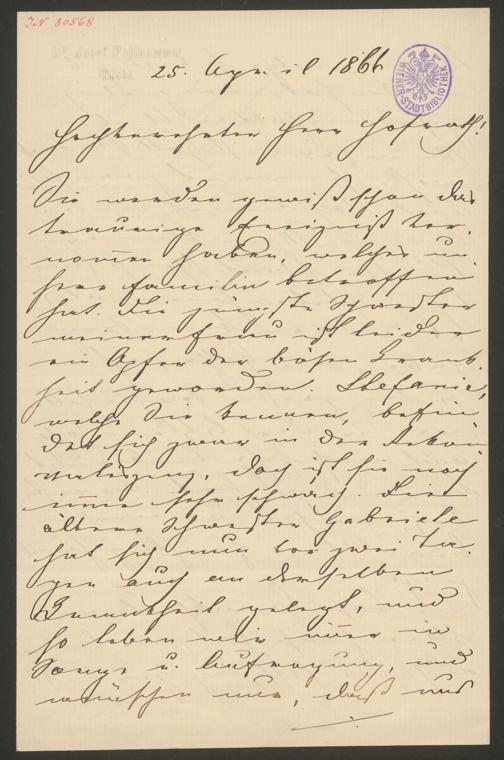 IN 80568
25. April 1866
WIENER-STADTBIBLIOTHEK
Hochverehrter Herr Hofrath!
Sie werden gewiß schon das
traurige Ereigniß ver-
nomen haben, welches un-
sere Familie betroffen
hat. Die jüngste Schwester
meiner Frau ist leider
ein Opfer der bösen Krank-
heit geworden. Stefanie,
welche Sie kennen, befin-
det sich zwar in der Rekon-
valeszenz, doch ist sie noch
imer sehr schwach. Die
ältere Schwester Gabriele
hat sich nun vor zwei Ta-
gen auch an derselben
Krankheit gelegt, und
so leben wir imer in
Sorge u. Aufregung, und
wünschen nur, daß uns